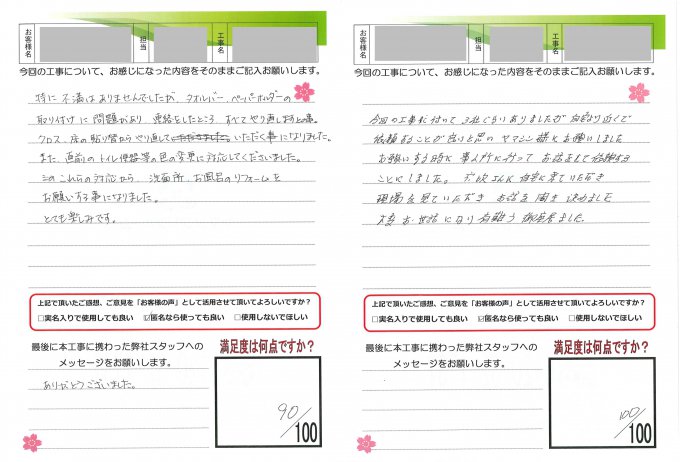 お客様名
担当
工事名
今回の工事について、お感じになった内容をそのままご記入お願いします。
特に不満はありませんでしたが、タオルバー、ペーパーホルダーの
取り付けに問題があり、連絡をしたところ、すべてやり直しするとの事。
クロス、床の貼り替からやり直していただく事になりました。
また、直前のトイレ便器等の色の変更に対応してくださいました。
このこれらの対応から、洗面所、お風呂のリフォームを
お願いする事になりました。
とても楽しみです。
上記で頂いたご感想、ご意見を「お客様の声」として活用させて頂いてよろしいですか？
□実名入りで使用しても良い ☑匿名なら使っても良い □使用しないでほしい
最後に本工事に携わった弊社スタッフへの
メッセージをお願いします。
ありがとうございました。
満足度は何点ですか？
90/100
お客様名
担当
工事名
今回の工事について、お感じになった内容をそのままご記入お願いします。
今回の工事に付って3社ぐらいありましたが
依頼することが良いと思 ヤマシン様にお願いしました
お願いする時に事ム所に行って お話をして依頼する
ことにしました。 さんに 来ていただき
現場を見ていただき お話を聞き 決めました
大変お世話になり有難う御座居ました。
上記で頂いたご感想、ご意見を「お客様の声」として活用させて頂いてよろしいですか？
□実名入りで使用しても良い ☑匿名なら使っても良い □使用しないでほしい
最後に本工事に携わった弊社スタッフへの
メッセージをお願いします。
満足度は何点ですか？
100/100